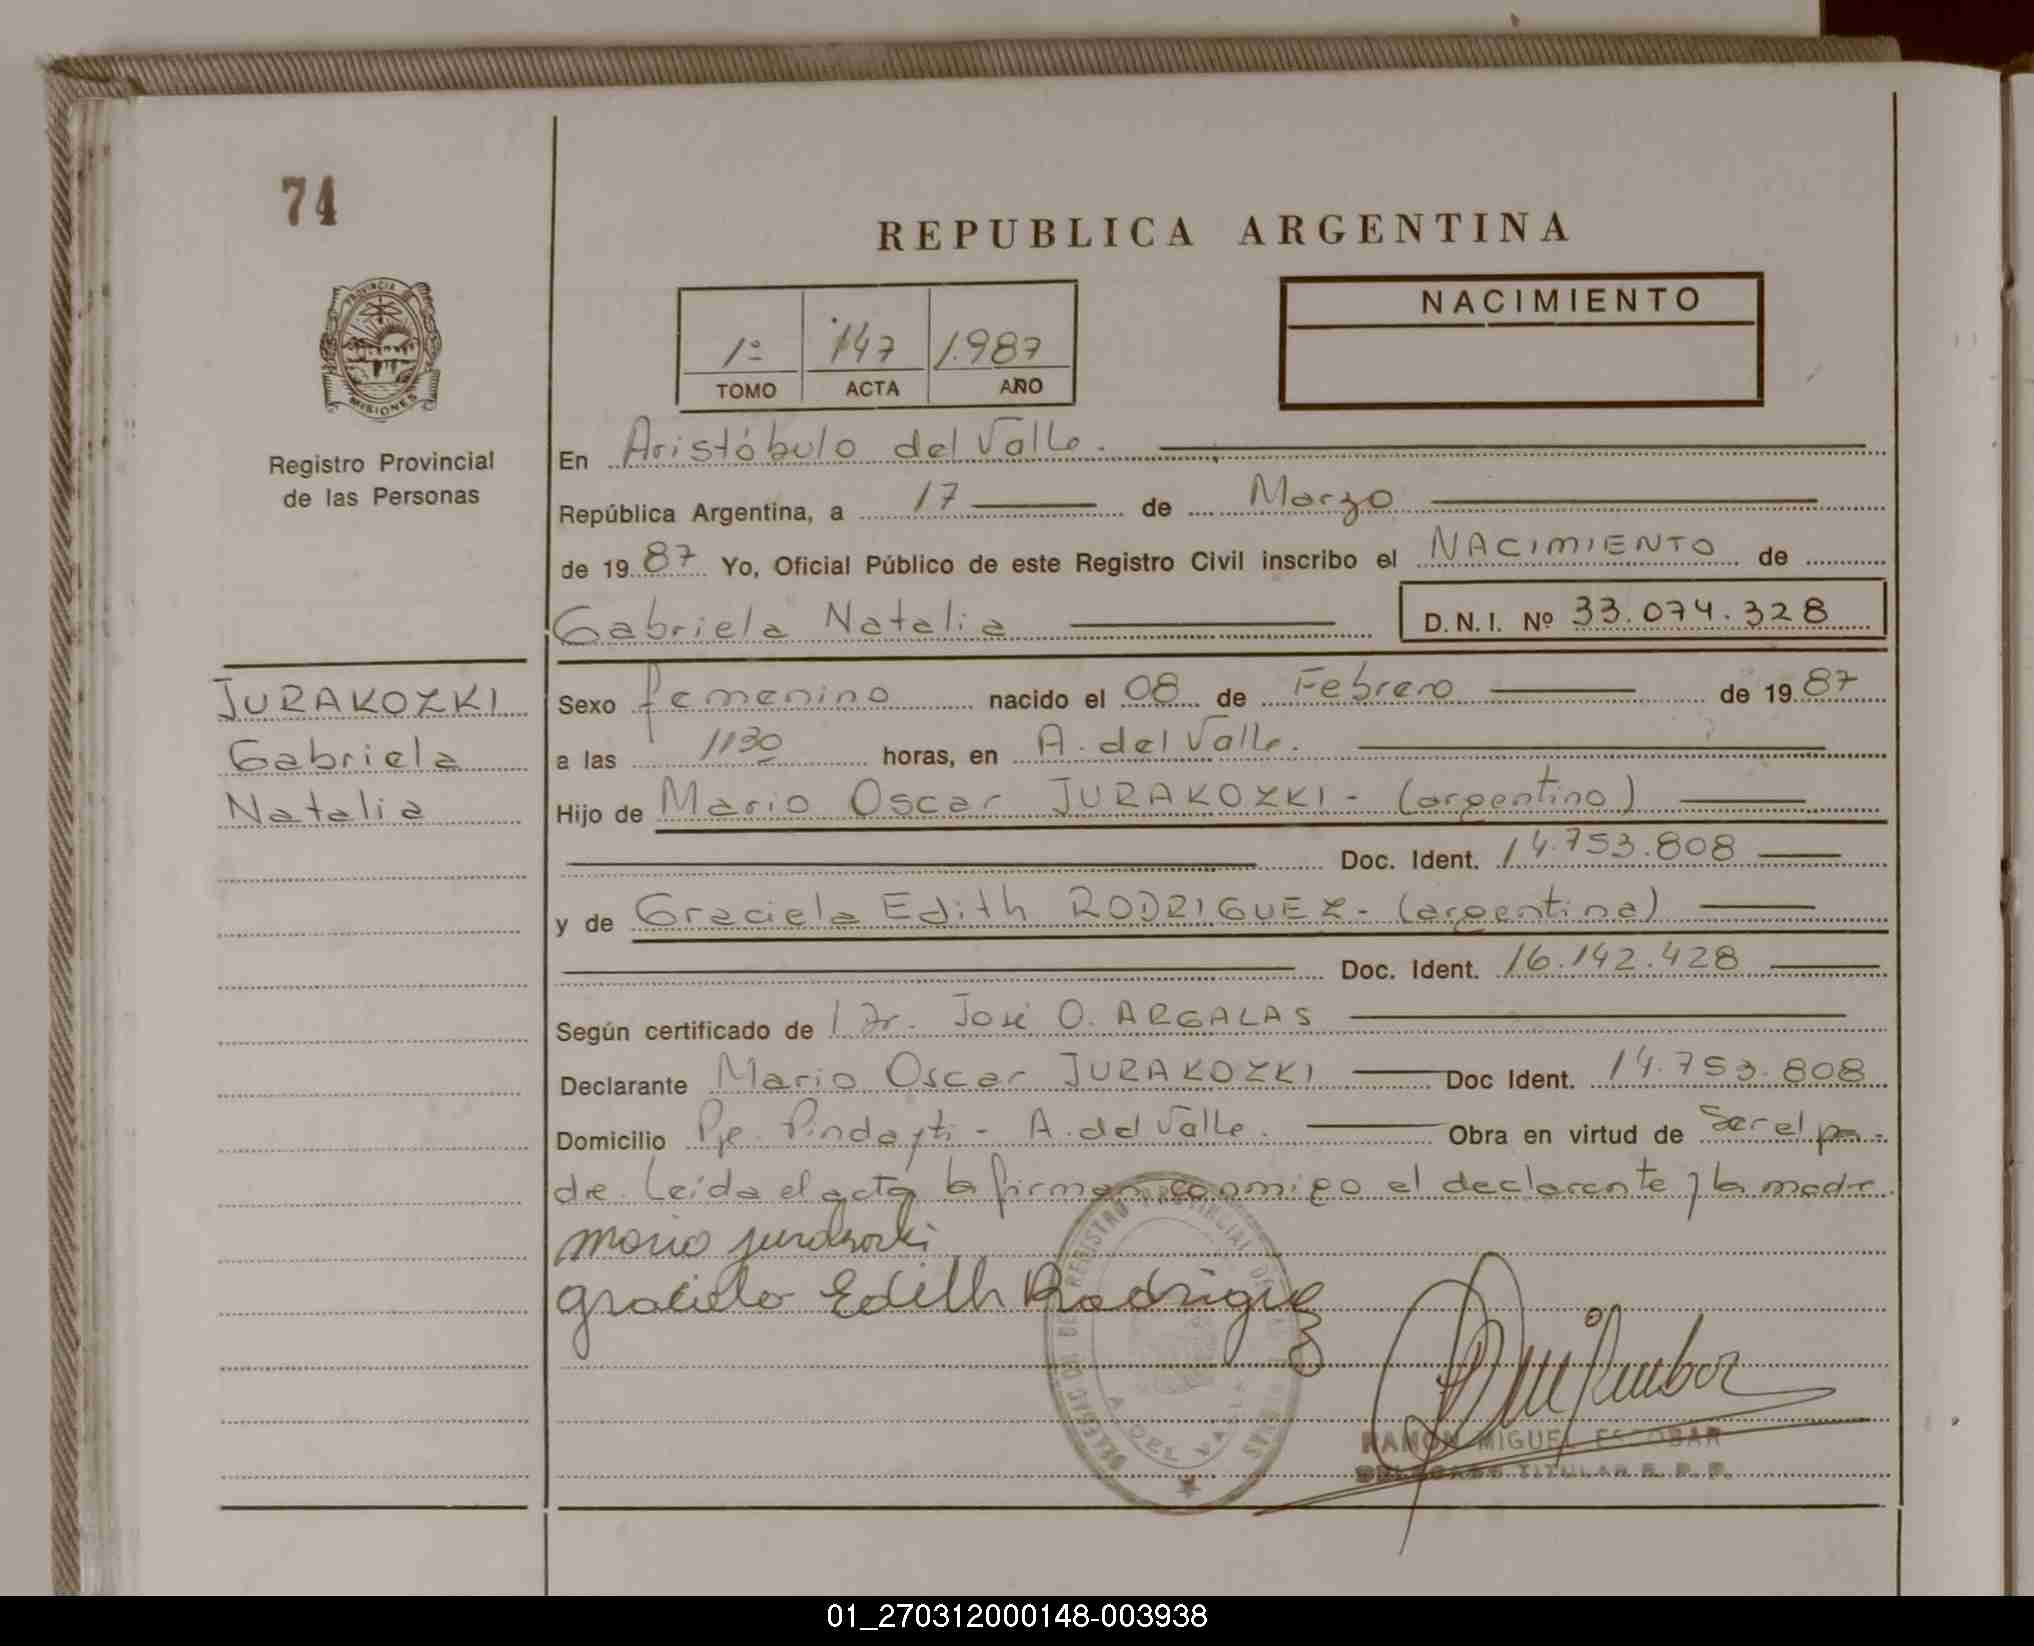 74
REPUBLICA ARGENTINA
PROVINCIA DE
MISIONES
Registro Provincial
de las Personas
1º 147 1.987
TOMO ACTA AÑO
NACIMIENTO
En Aristóbulo del Valle.
República Argentina, a 17 de Marzo
de 19 87 Yo, Oficial Público de este Registro Civil inscribo el NACIMIENTO de
Gabriela Natalia D.N.I. Nº 33.074.328
JURAKOZKI
Gabriela
Natalia
Sexo femenino nacido el 08 de Febrero de 19 87
a las 1130 horas, en A. del Valle.
Hijo de Mario Oscar JURAKOZKI - (argentino)
Doc. Ident. 14.753.808
y de Graciela Edith RODRIGUEZ - (argentina)
Doc. Ident. 16.142.428
Según certificado de Dr. José O. ARGALAS
Declarante Mario Oscar JURAKOZKI Doc Ident. 14.753.808
Domicilio A. del Valle. Obra en virtud de Ser el pa-
dre. Leída el acta la firman conmigo el declarante y la madre.
Mario
Graciela Edith Rodriguez
RAMON MIGUEL ESCOBAR
DELEGADO TITULAR R. P. P.
A. DEL VALLE
01_270312000148-003938